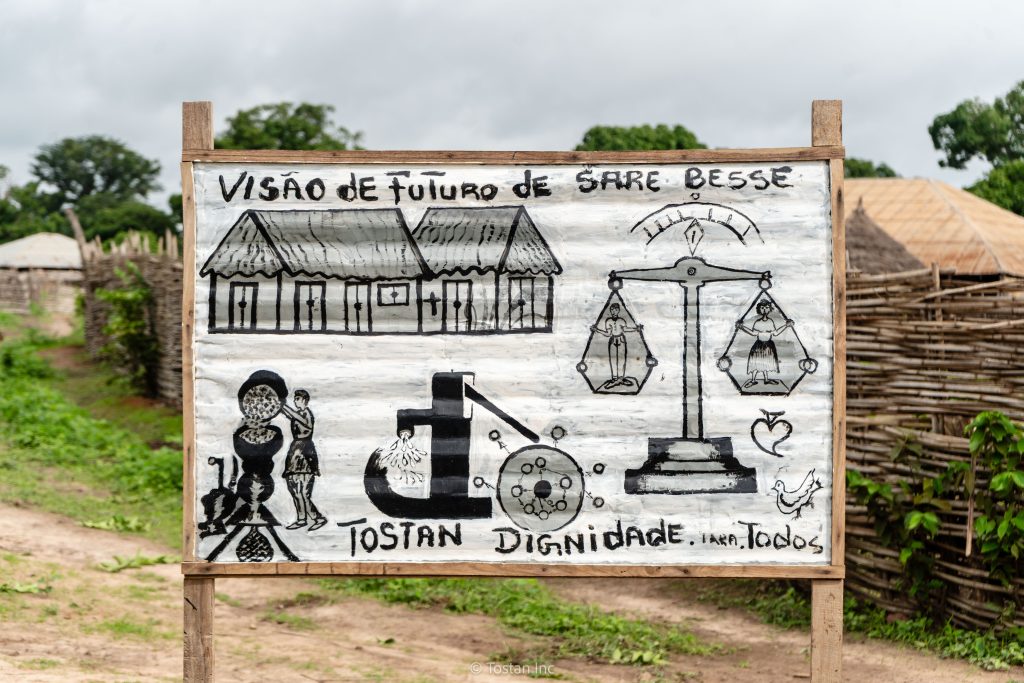 VISÃO dE FuTuRO dE SARE BESSE
TOSTAN DIGNIdAdE. PARA. TOdOS
© Tostan Inc